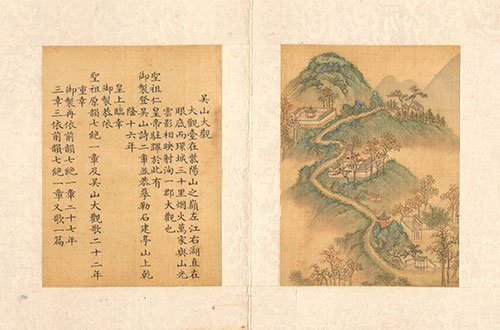 吳山大觀
大觀臺在紫陽山之巔左江右湖直在
眼底而環城三十里烟火萬家與山光
雲影相映射洵一郡大觀也
聖祖仁皇帝駐蹕於此有
御製登吳山詩二章並恭摹勒石建亭山上乾
隆十六年
皇上臨幸
御製恭依
聖祖原韻七絕一章及吳山大觀歌二十二年
重幸
御製再依前韻七絕一章二十七年
三幸三依前韻七絕一章又歌一篇